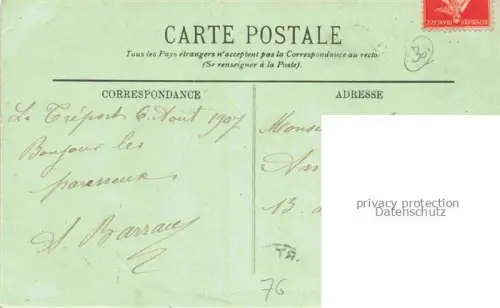 REPUBLIQUE
FRANCAISE
CARTE POSTALE
Tous les Pays étrangers n'acceptent pas la Correspondance au recto.
(Se renseigner à la Poste).
30
CORRESPONDANCE
ADRESSE
Le Tréport 6 Aout 1907
Bonjour les
paresseux
Monsieur
13
privacy protection
Datenschutz
76